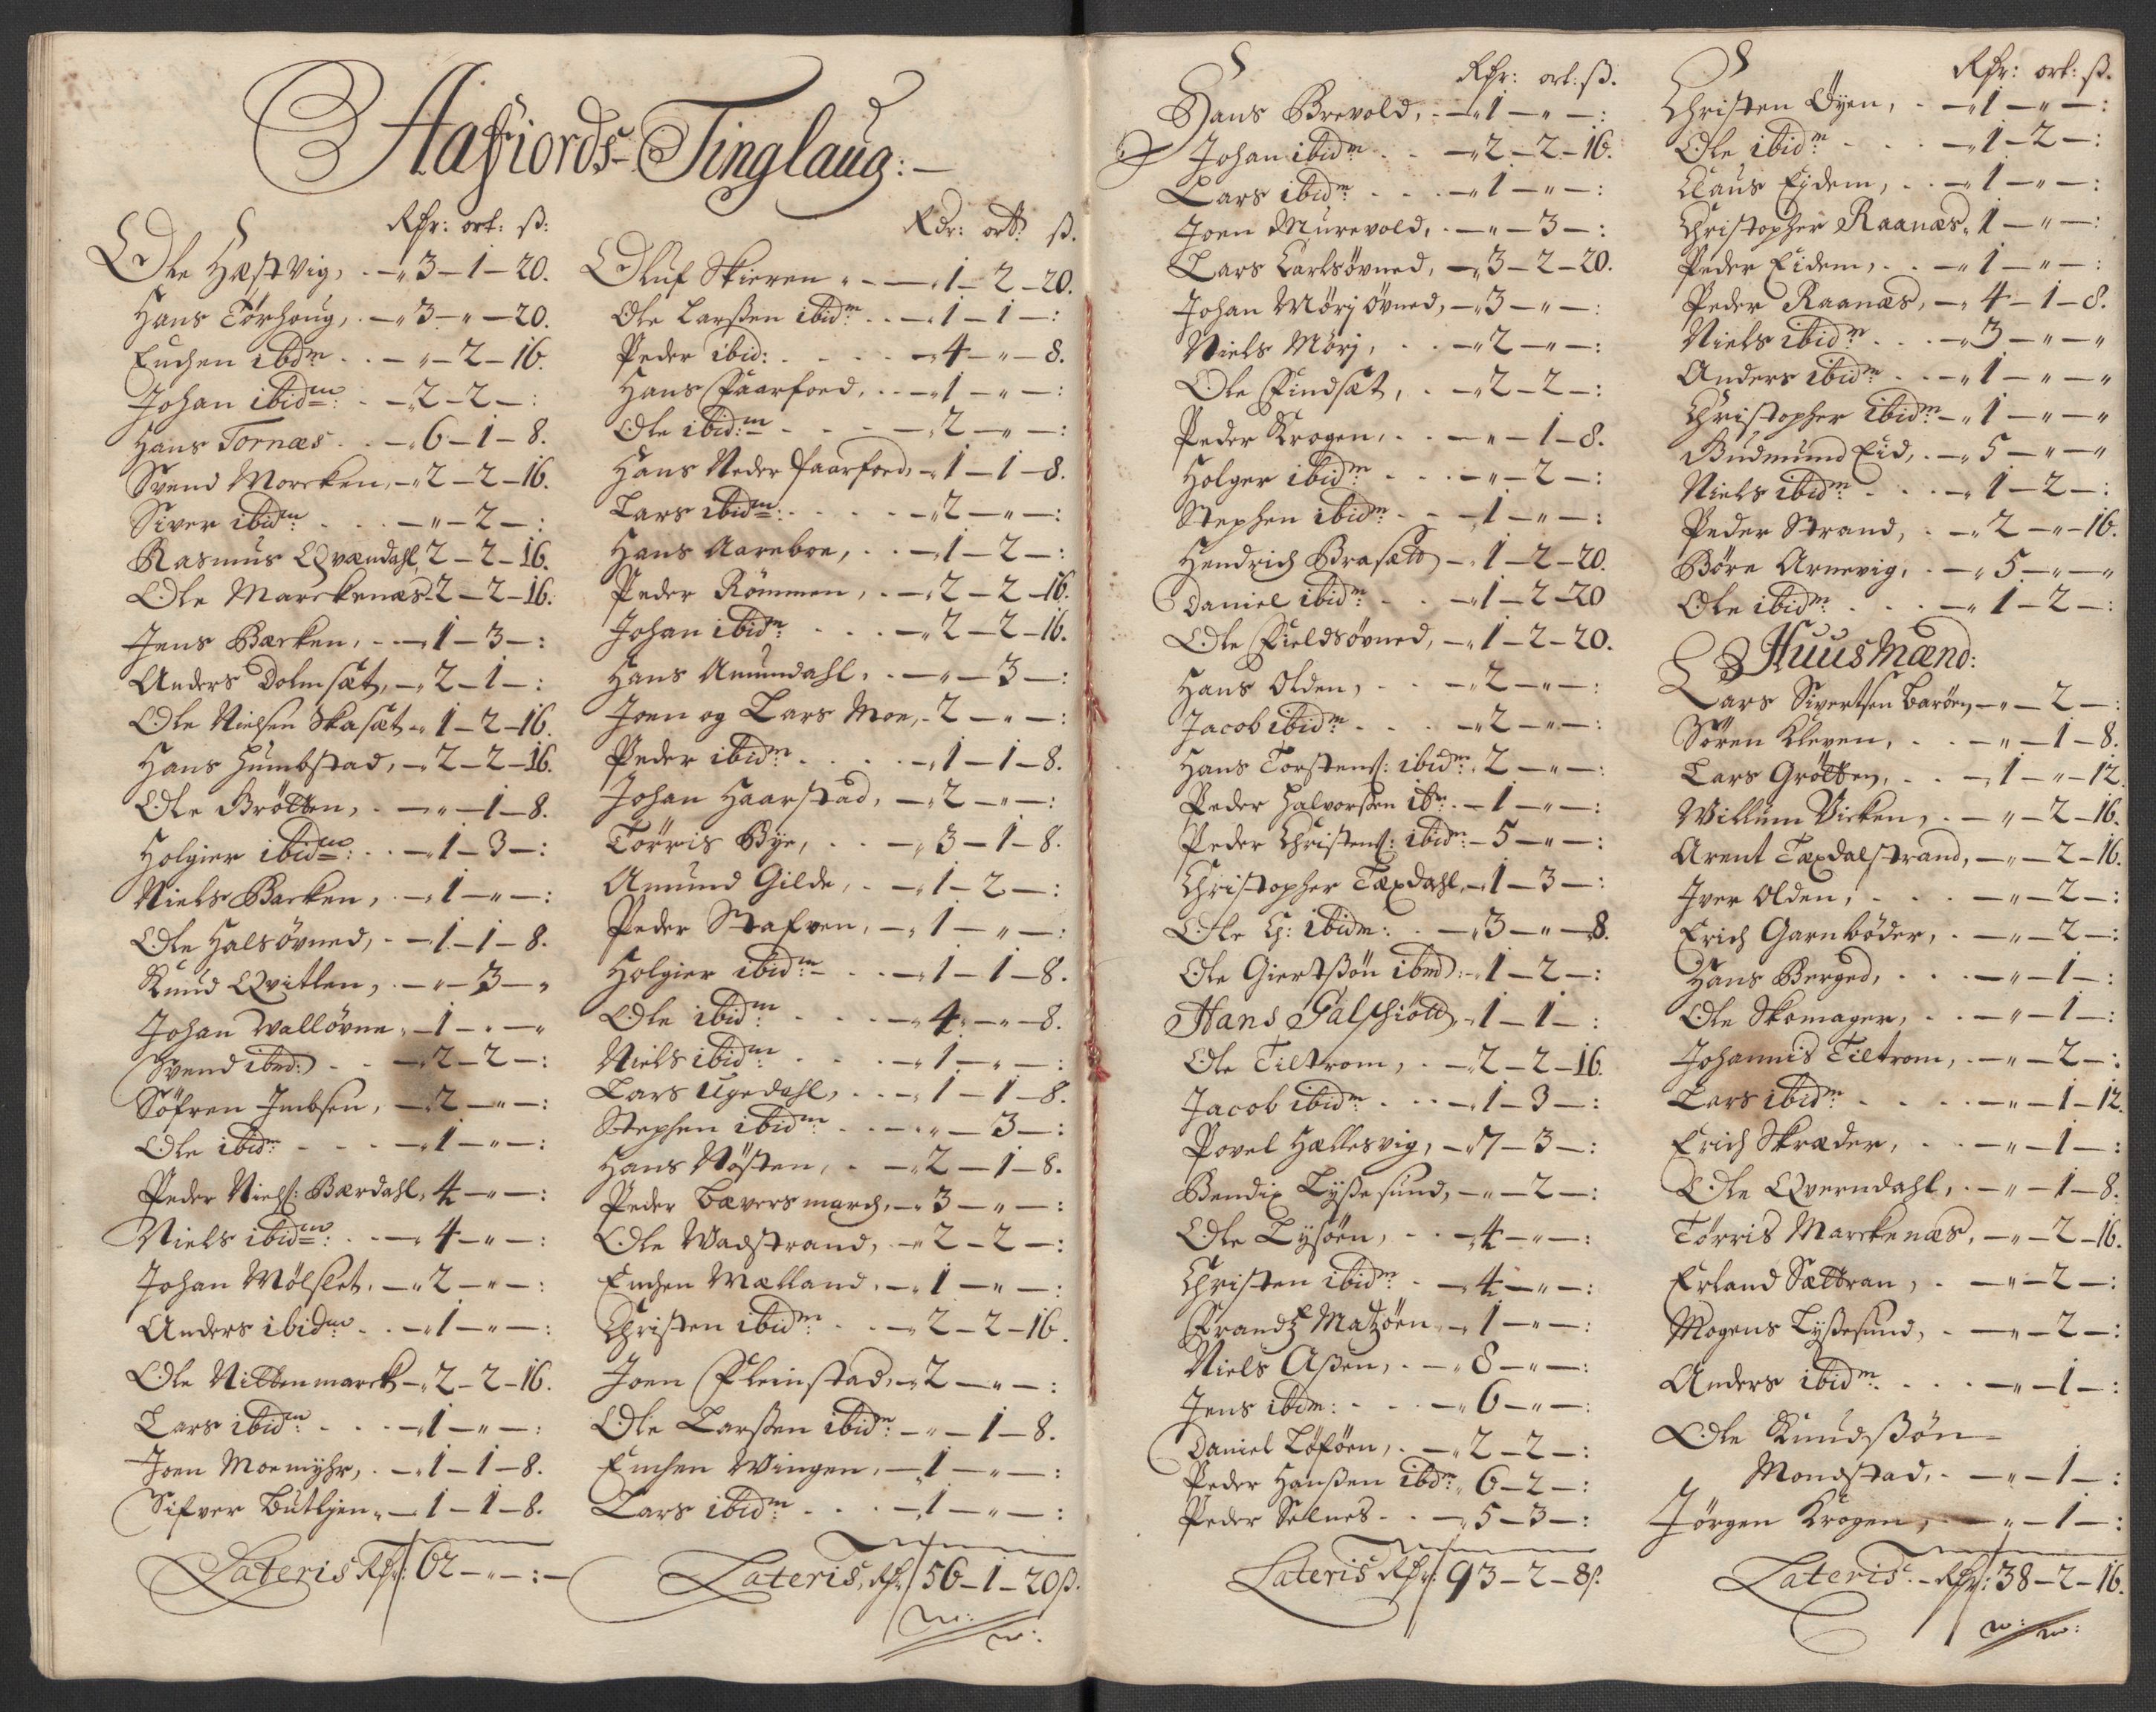 Aafiords Tinglaug:
Rdr: ort: ß:
Ole Hæstvig, - 3 - 1 - 20.
Hans Tørhoug, - 3 - " - 20.
Euchen ibdm - " - 2 - 16.
Johan ibidm: - 2 - 2 - :
Hans Tornæs - 6 - 1 - 8.
Svend Morcken, - 2 - 2 - 16.
Siver ibidm - " - 2 - :
Rasmus Qvændahl, 2 - 2 - 16.
Ole Marckenæs - 2 - 2 - 16.
Jens Bærken, - 1 - 3 - :
Anders Dolmsæt, - 2 - 1 - :
Ole Nielsen Skasæt - 1 - 2 - 16.
Hans Humbstad, - 2 - 2 - 16.
Ole Brøtten, - " - 1 - 8.
Holgier ibidm: - 1 - 3 - :
Niels Barken, - 1 - " - :
Ole Halsøvned, - 1 - 1 - 8.
Knud Qvitlen, - " - 3 - "
Johan Walløvne, - 1 - " - "
Svend ibmd: - 2 - 2 - :
Søfren Imbsen, - 2 - " - :
Ole ibidm - 1 - " - :
Peder Nielß: Bærdahl, 4 - " - :
Niels ibidm: - 4 - " - :
Johan Mølslet, - 2 - " - :
Anders ibidm - 1 - " - :
Ole Nittenmarck - 2 - 2 - 16.
Lars ibidm - 1 - " - :
Joen Moemyhr, - 1 - 1 - 8.
Sifver Butljen, - 1 - 1 - 8.
Lateris Rdr: 62 - " - : -
Rdr: ort: ß.
Oluf Skieren - 1 - 2 - 20.
Ole Larßen ibidm - 1 - 1 - :
Peder ibid: - 4 - " - 8.
Hans Faarfoed, - 1 - " - :
Ole ibid:m - 2 - " - :
Hans Neder Faarfoed, - 1 - 1 - 8.
Lars ibidm: - 2 - " - :
Hans Aareboe, - 1 - 2 - :
Peder Römmen, - 2 - 2 - 16.
Johan ibidm - 2 - 2 - 16.
Hans Amundahl, - " - 3 - :
Joen og Lars Moe, - 2 - " - :
Peder ibidm - 1 - 1 - 8.
Johan Haarstad, - 2 - " - :
Törris Bye, - 3 - 1 - 8.
Amund Gilde, - 1 - 2 - :
Peder Stafven, - 1 - " - :
Holgier ibidm - 1 - 1 - 8.
Ole ibidm - 4 - " - 8.
Niels ibidm - 1 - " - :
Lars Ugedahl, - 1 - 1 - 8.
Stephen ibidm - " - 3 - :
Hans Nøsten, - 2 - 1 - 8.
Peder Bæversmarch, - 3 - " - :
Ole Wadstrand, - 2 - 2 - :
Enchen Mælland, - 1 - " - :
Christen ibidm - 2 - 2 - 16.
Joen Fleinstad, - 2 - " - :
Ole Larßen ibidm - " - 1 - 8.
Enchen Wingen, - 1 - " - :
Lars ibidm - 1 - " - :
Lateris, Rdr 56 - 1 - 20ß.
Rdr: ort: ß.
Hans Brevold, - 1 - " - :
Johan ibidm - 2 - 2 - 16.
Lars ibidm - 1 - " - :
Joen Murevold, - " - 3 - :
Lars Carlsøvned, - 3 - 2 - 20.
Johan Mørj øvned, - 3 - " - :
Niels Mørj, - 2 - " - :
Ole Findsæt, - 2 - 2 - :
Peder Krogen, - " - 1 - 8.
Holger ibidm - " - 2 - :
Stephen ibidm - 1 - " - :
Hendrich Brasætt - 1 - 2 - 20.
Daniel ibidm - 1 - 2 - 20
Ole Fieldsøvned, - 1 - 2 - 20.
Hans Olden, - 2 - " - :
Jacob ibidm - 2 - " - :
Hans Torstenß: ibidm 2 - " - :
Peder Halvorßen ibm - 1 - " - :
Peder Christenß: ibidm - 5 - " - :
Christopher Tæxdahl, - 1 - 3 - :
Ole Ch: ibidm: - 3 - " - 8.
Ole Giertßøn ibmd: - 1 - 2 - :
Hans Galschiøtt, - 1 - 1 - :
Ole Tiltrom, - 2 - 2 - 16.
Jacob ibidm - 1 - 3 - :
Povel Hællesvig, - 7 - 3 - :
Bendix Lyßesund, - " - 2 - :
Ole Lysøen, - 4 - " - :
Christen ibidm - 4 - " - :
Frandtz Matzøen, - 1 - " - :
Niels Aßen, - 8 - " - :
Jens ibdm: - 6 - " - :
Daniel Løføen, - 2 - 2 - :
Peder Hanßen ibdm 6 - 2 - :
Peder Selnes - 5 - 3 - :
Lateris Rdr: 93 - 2 - 8ß.
Rdr: ort: ß.
Christen Øyen, - 1 - " - :
Ole ibidm - 1 - 2 - :
Claus Eydem, - 1 - " - :
Christopher Raanæs, 1 - " - :
Peder Eidem, - 1 - " - :
Peder Raanæs, - 4 - 1 - 8.
Niels ibidm - 3 - " - "
Anders ibidm - 1 - " - "
Christopher ibidm - 1 - " - "
Gudmund Eid, - 5 - " - "
Niels ibidm - 1 - 2 - :
Peder Strand, - 2 - " - 16.
Børe Arnevig, - 5 - " - "
Ole ibidm - 1 - 2 - :
Huusmænd:
Lars Sivertsen Barøen, - " - 2 - :
Søren Kleven, - " - 1 - 8.
Lars Grøtten, - 1 - " - 12.
Willum Vicken, - " - 2 - 16.
Arent Tæxdalstrand, - " - 2 - 16.
Iver Olden, - " - 2 - :
Erich Garnbøder, - " - 2 - :
Hans Berged, - " - 1 - :
Ole Skomager, - " - 1 - :
Johannis Tiltrom, - " - 2 - :
Lars ibidm - " - 1 - 12.
Erich Skræder, - " - 1 - :
Ole Qverndahl, - " - 1 - 8.
Tørris Marckenæs, - " - 2 - 16.
Erland Sættran, - " - 2 - :
Mogens Lyßesund, - " - 2 - :
Anders ibidm - " - 1 - :
Ole Knudßøn
Mondstad, - " - 1 - :
Jørgen Krogen, - " - 1 - :
Lateris - Rdr: 38 - 2 - 16.